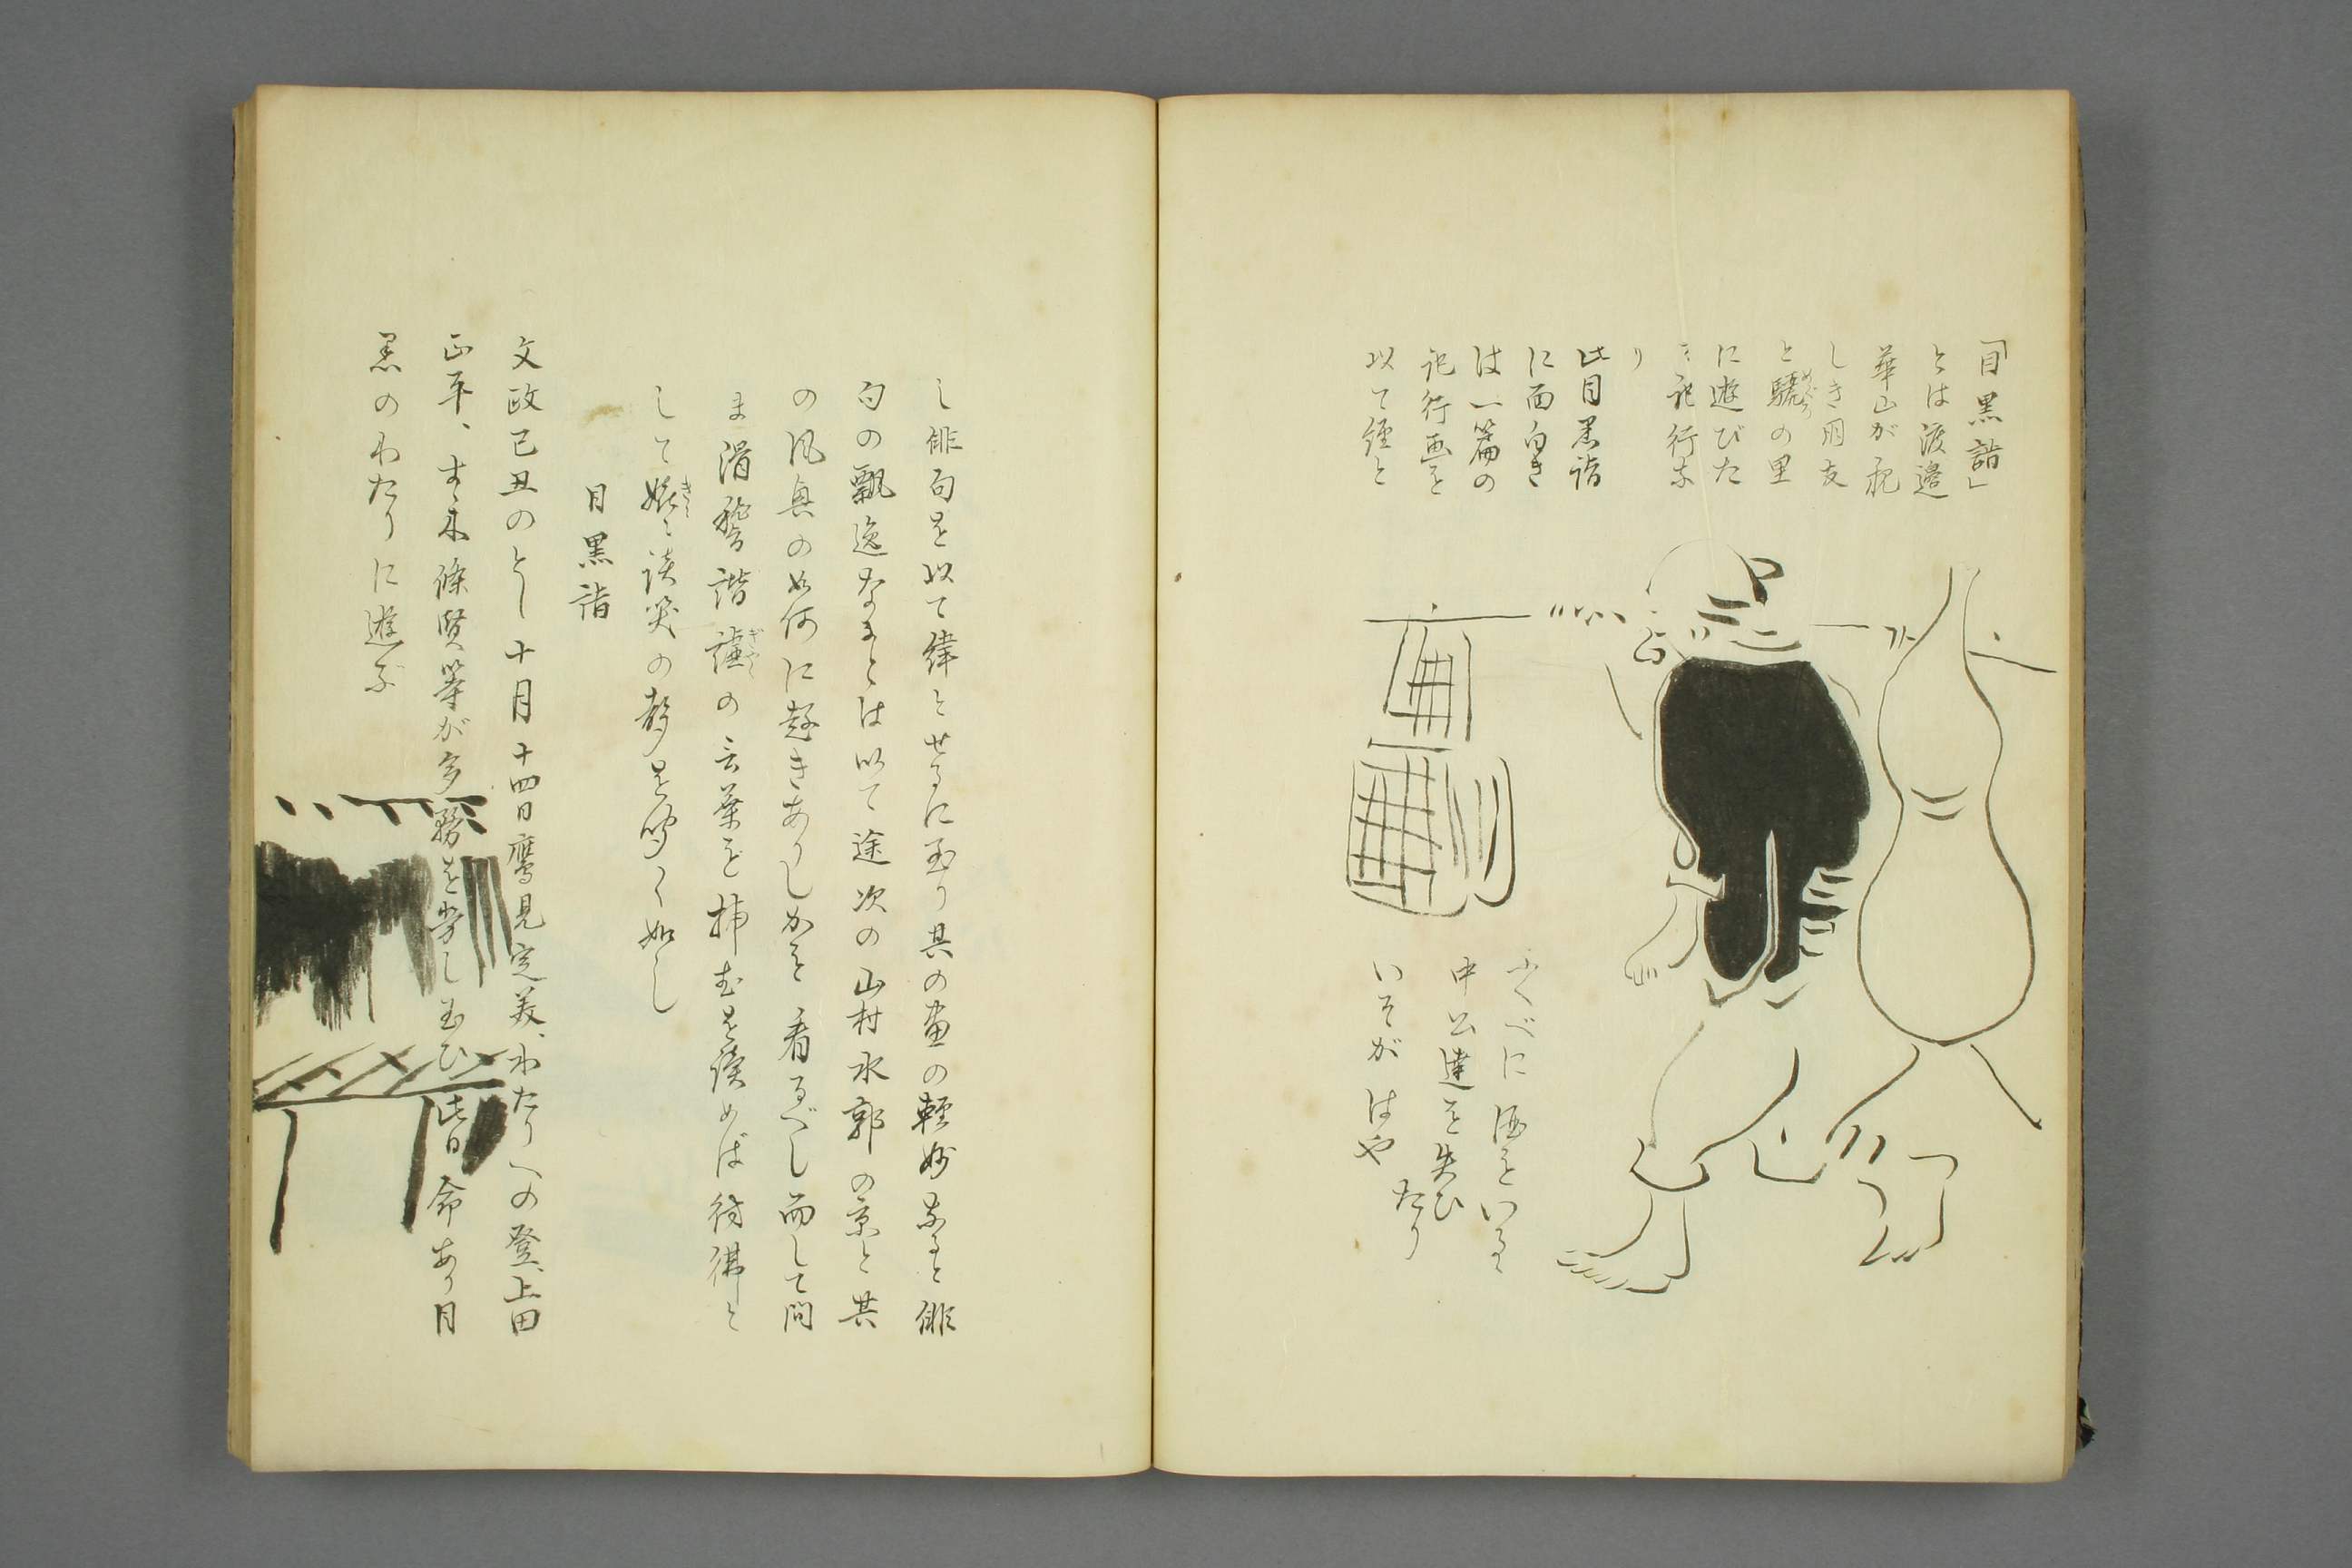 「目黒詣」
とは渡邉
華山が親
しき朋友
と驪めぐろの里
に遊びた
る記行な
り
此目黒詣
に面白き
は一篇の
記行画を
以て経と
ふくべに酒をいるゝ
中公達を失ひ
たり
いそがはや
し俳句を以て緯とせるに至り其の画の軽妙なると俳
句の飄逸なることは以て途次の山村水郭の景と共
の風魚の如何に趣きありしかを看るべし而して間
ま滑稽諧謔ぎやくの言葉を挿むを読めば彷彿と
して嬉きゝ談笑の声を聞く如し
目黒詣
文政己丑のとし十月十四日鷹見定美、わたりへの登、上田
正平、すゝ木條賢等が多務を労し玉ひ此日命あり目
黒のわたりに遊ぶ